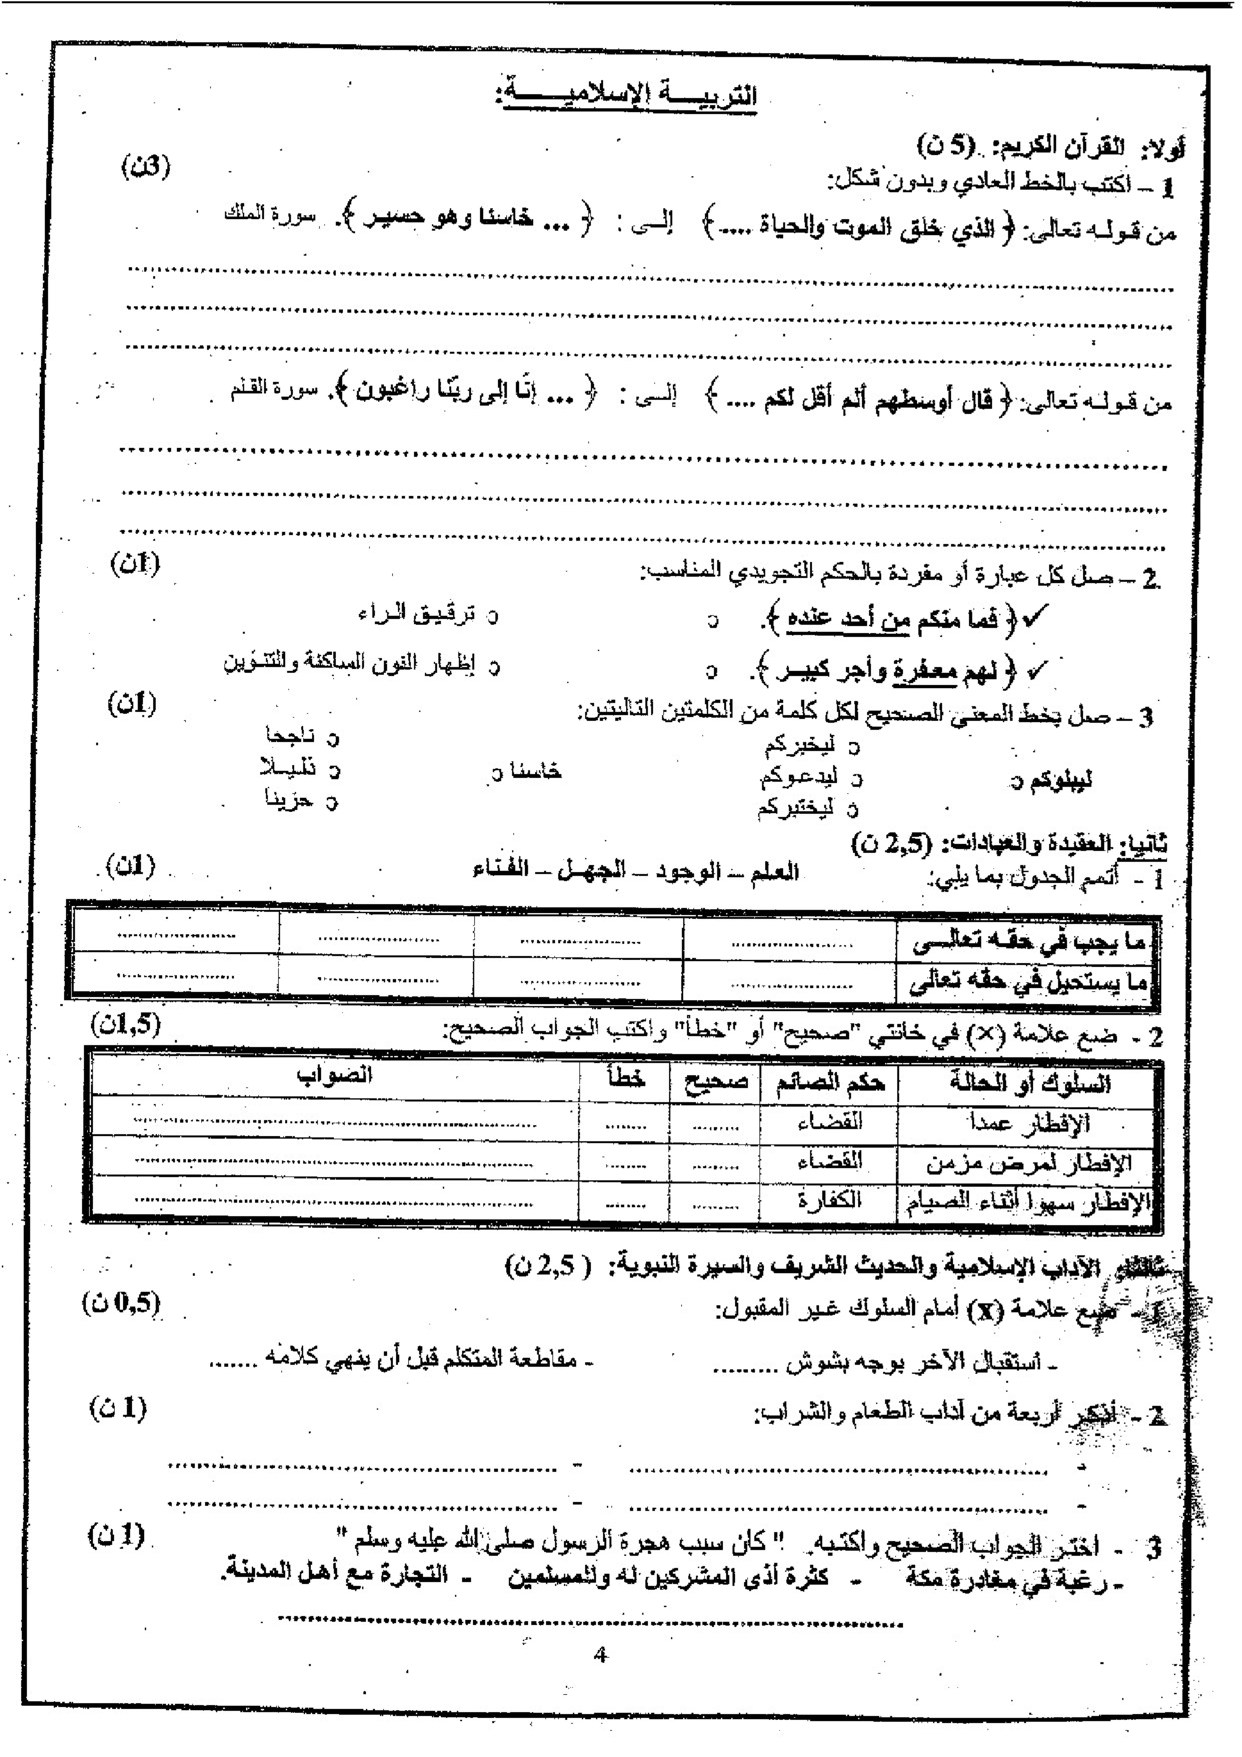 التربيـــة الإسلاميـــــة:
أولا: القرآن الكريم: (5 ن)
1 – أكتب بالخط العادي وبدون شكل: (3ن)
من قوله تعالى: ﴿ الذي خلق الموت والحياة .... ﴾ إلى : ﴿ ... خاسئا وهو حسير ﴾. سورة الملك
................................................
................................................
................................................
من قوله تعالى: ﴿ قال أوسطهم ألم أقل لكم .... ﴾ إلى : ﴿ ... إنّا إلى ربّنا راغبون ﴾. سورة القلم
................................................
................................................
................................................
2 – صل كل عبارة أو مفردة بالحكم التجويدي المناسب: (1ن)
✓ ﴿ فما منكم من أحد عنده ﴾. o o ترقيق الراء
✓ ﴿ لهم معفرة وأجر كبير ﴾. o o إظهار النون الساكنة والتنوين
3 – صل بخط المعنى الصحيح لكل كلمة من الكلمتين التاليتين: (1ن)
o ليخبركم o ناجحا
ليبلوكم o o ليدعوكم خاسئا o o ذليلا
o ليختبركم o حزينا
ثانيا: العقيدة والعبادات: (2,5 ن)
1 - أتمم الجدول بما يلي: العلم – الوجود – الجهل – الفناء (1ن)
ما يجب في حقه تعالى ........ ........ ........ ........
ما يستحيل في حقه تعالى ........ ........ ........ ........
2 - ضع علامة (X) في خانتي "صحيح" أو "خطأ" واكتب الجواب الصحيح: (1,5ن)
السلوك أو الحالة حكم الصائم صحيح خطأ الصواب
الإفطار عمدا القضاء ........ ....... ................
الإفطار لمرض مزمن القضاء ........ ....... ................
الإفطار سهوا أثناء الصيام الكفارة ........ ....... ................
ثالثا: الآداب الإسلامية والحديث الشريف والسيرة النبوية: ( 2,5 ن)
1 - ضع علامة (x) أمام السلوك غير المقبول: (0,5 ن)
- أستقبال الآخر بوجه بشوش ......... - مقاطعة المتكلم قبل أن ينهي كلامه .......
2 - أذكر أربعة من آداب الطعام والشراب: (1 ن)
- ................ - ................
- ................ - ................
3 - اختر الجواب الصحيح واكتبه. " كان سبب هجرة الرسول صلى الله عليه وسلم " (1 ن)
- رغبة في مغادرة مكة - كثرة أذى المشركين له وللمسلمين - التجارة مع أهل المدينة.
................................
4